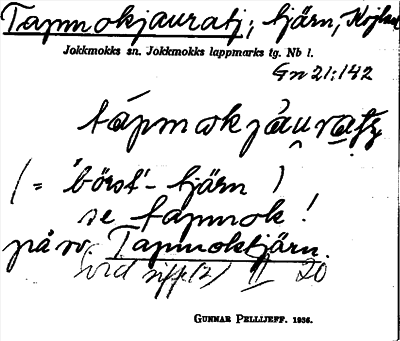 Tapmokjauratj, tjärn,
Jokkmokks sn. Jokkmokks lappmarks tg. Nb l.
Gn 21:142
tápmokjáuratj
(= 'börst'- tjärn )
se tapmok!
på sv. Tapmoktjärn.
II 20
GUNNAR PELLIJEFF. 1936.